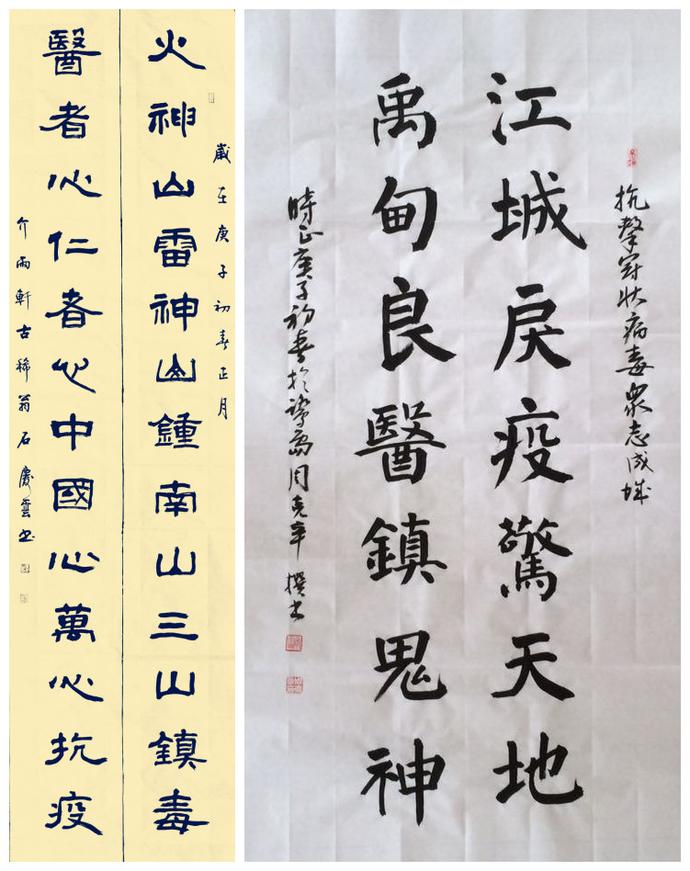 歲在庚子初春正月
火神山雷神山鍾南山三山鎮毒
醫者心仁者心中國心萬心抗疫
介雨軒古稀翁石慶雲书
抗擊冠狀病毒眾志成城
江城戾疫驚天地
禹甸良醫鎮鬼神
時正庚子初春於周克辛撰书